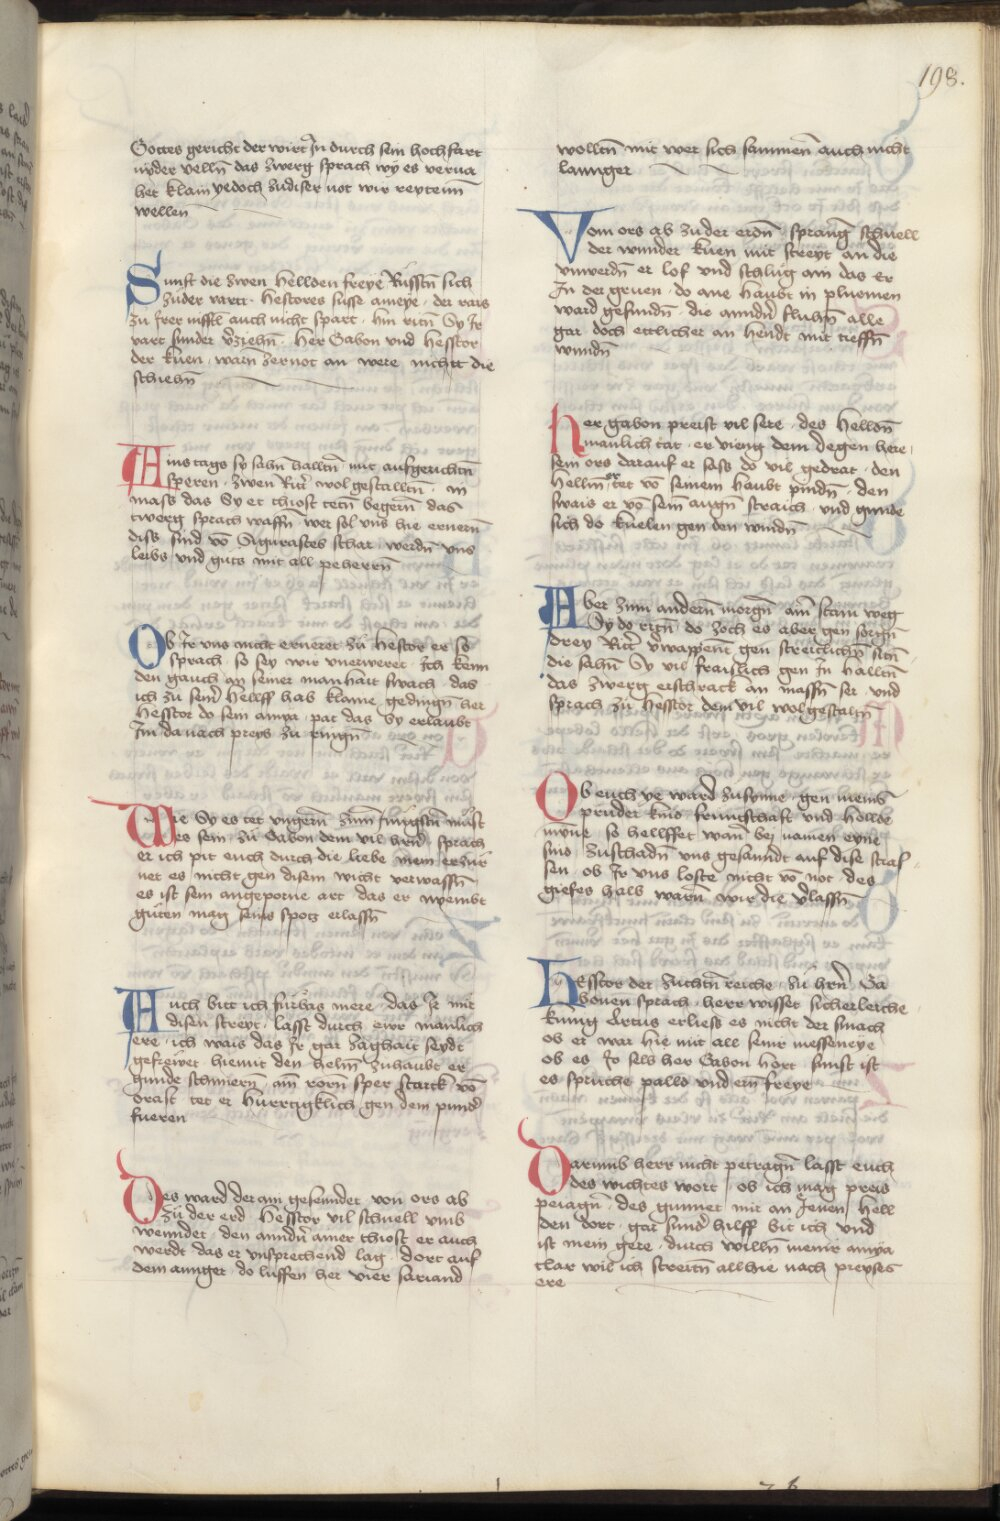 198.
Gottes gericht der wirt Jn durch sein hochfart
nyder velln̄ das zwerg sprach wy es verua
het klain yedoch zudiser not wir reytenn
wellen
Sunst die zwen hellden freye Russtn̄ sich
zuder vartt · hestores susse ameye · der rais
zu Jrer nifftl auch nicht spart · hin ritn̄ Sy Jr
vart sunder v̄ziehn̄ · her Gabon vnd hesstor
der kuen · warn̄ zernot an were nichtt die
schiehn̄
Ains tags sy sahn̄ halltn̄ · mit aufgerichtn̄
speren · zwen Ritr̄ wol gestalltn̄ · in
mass das Sy et thiost tetn̄ begern̄ das
twerg sprach waffn̄ · wer sol vns hie ernern̄
diss sind vō Sigurastes schar · werdn̄ vns
leibs vnd guts mit all peherrn̄
Ob Jr vns nicht erneret zu hestor er so
sprach · so sey wir vnerweret · Jch kenn
den gauch an seiner manhait swach · das
ich zu sein̄ hellff hab klaine gedingn̄ her
hesstor do sein amya · pat das Sy erlaubt
Jm da nach preys zu ringn̄
Wie Sy es tet vngern̄ zum̄ fuñgstn̄ must
es sein · zu Gabon dem vil hrn̄ · sprach
er ich pit euch durch die liebe mein erzur
net es nicht gen disem wicht verwassn̄
es ist sein angeporne art das er niembt
guten mag seins spotz erlassn̄
Auch bitt ich furbas mere · das Jr mir
disen streyt · lasst durch ewr manlich
ere · ich wais das Jr gar zaghait seydt
gefreyet · hiemit den helm̄ zuhaubt er
gunde schniern̄ · ain rorn̄ sper starck vō
orast tet er huertigklich gen dem punder
fueren
Des ward der ain gesenndet von ors ab
zu der erd hesstor vil schnell vmb
wenndet · den anndn̄ ainer thiost er auch
werdt das er vnsprechend lag · dort auf
dem annger · do luffen her vier sariand
wolltn̄ mit wer sich sammen auch nicht
lannger
Vom ors ab zu der erdn̄ · sprang schnell
der wunder kuen mit streyt an die
vnwerdn̄ er lof vnd schlug ain das er
Jn der gruen · do ane haubt in pluemen
ward gefundn̄ · die anndn̄ fluhn̄ alle
gar doch ettlicher an hendt mit tieffn̄
wundn̄
her gabon preist vil sere · des helldn̄
manlich tat · er vieng dem degen here ·
sein ors darauf er sass do vil gedrat · den
hellm er tet vō seinem haubt pindn̄ · den
swais er vō sein̄ augn̄ straich · vnd gunde
sich do kuelen gen den windn̄
Aber zum andern̄ morgn̄ ain stain weg
Sy do ritn̄ · do zoch es aber gen sorgn̄
drey Ritr̄ v̄wappennt gen streitlichn̄ sitn̄ ·
die sahn̄ Sy vil fraislich gen Jn halltn̄
das zwerg erschrack an massn̄ ser · vnd
sprach zu hesstor dem vil wolgestaltn̄
Ob euch ye ward zusynne · gen niemb
pruder kind freuntschafft vnd hollde
mynne · so hellffet wann̄ bej namen eyne
sind zuschadn̄ vns gesanndt auf dise stras
sen · ob Jr vns loste nicht vō not · des
giefes hals warn̄ wir die v̄lassn̄
Hesstor der zuchtn̄ reiche · zu hrn̄ Ga
bonen sprach · herr wisset sicherleiche ·
kunig Artus erliess es nicht der smach
ob er war hie mit all seinr messeneye
ob es Jo sels her Gabon hort · sunst ist
es spruche palld vnd ein freye
Darumb herr nicht petragn̄ lasst euch
des wichtes wort · ob ich mag preis
peiagn̄ · des gunnet mir an Jenen hell
den dort · gar sund̄ hilff bit ich vnd
ist mein gere · durch willn̄ meinr amya
clar wil ich streitn̄ allhie nach preyses
ere